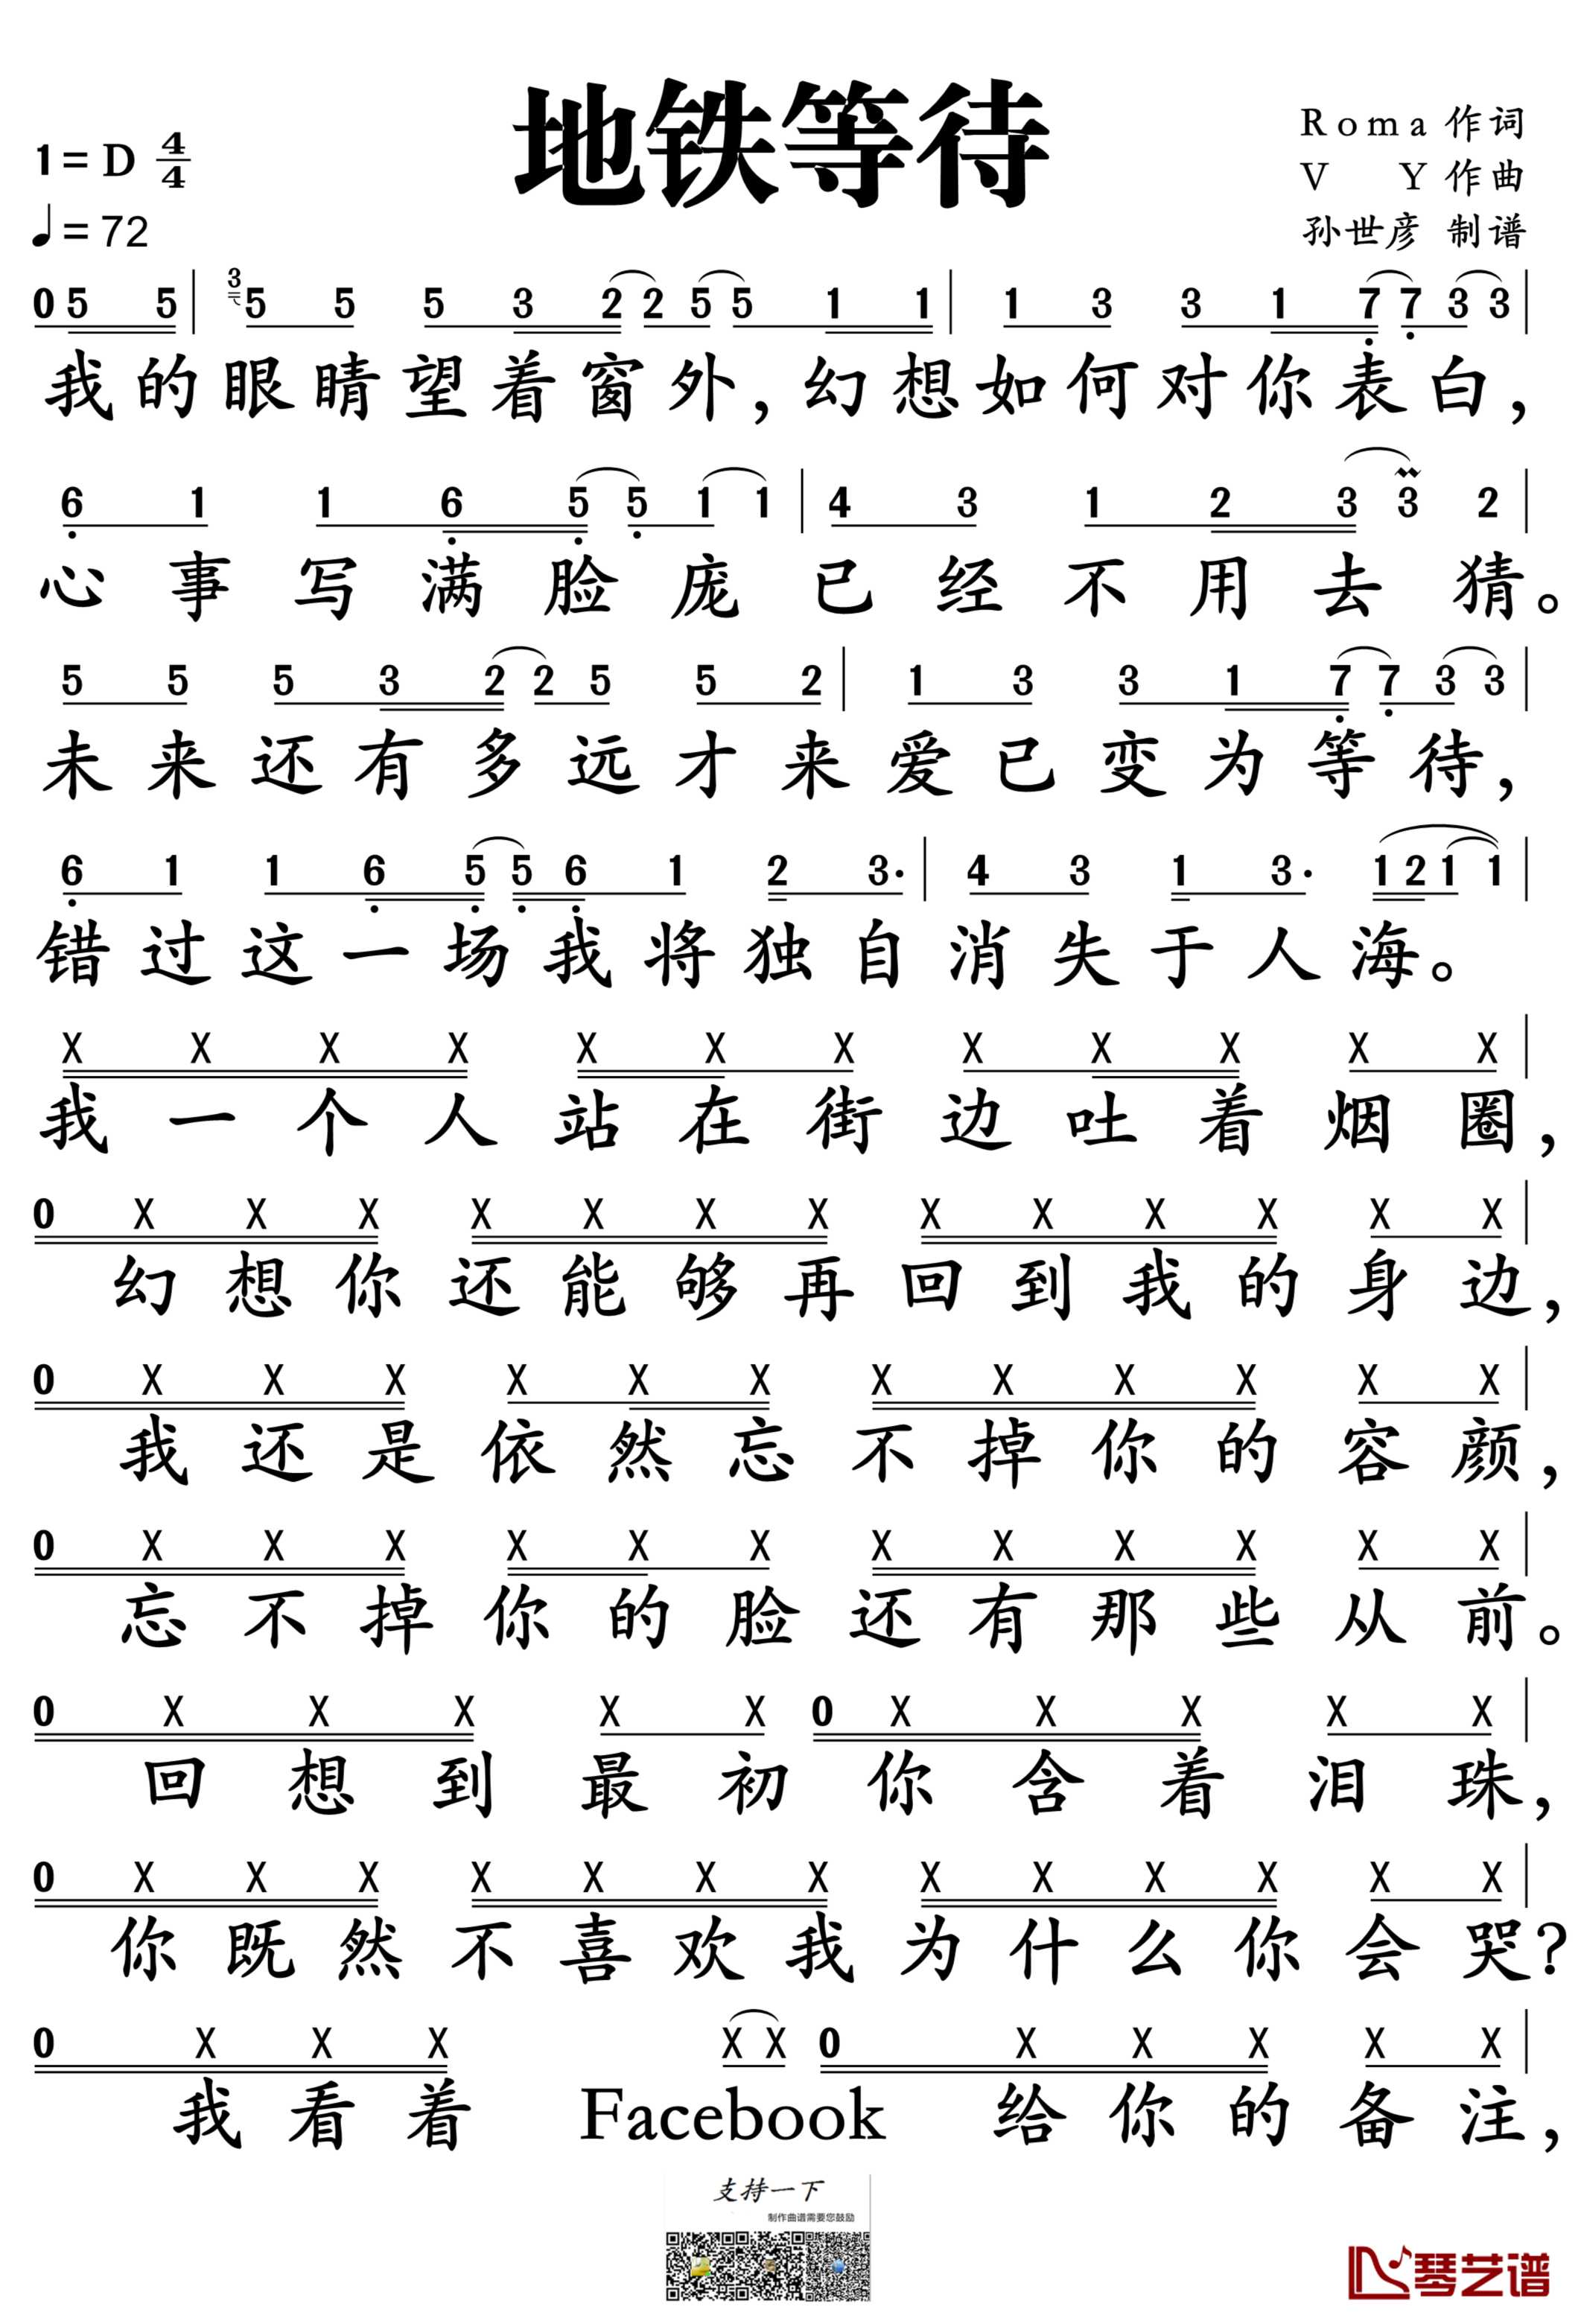 地铁等待
1=D 4/4
♩=72
Roma 作词
V Y 作曲
孙世彦 制谱
0 5 5 | 3 5 5 5 3 2 2 5 5 1 1 | 1 3 3 1 7 7 3 3 |
我的眼睛望着窗外,幻想如何对你表白,
6 1 1 6 5 5 1 1 | 4 3 1 2 3 3 2 |
心事写满脸庞已经不用去猜。
5 5 5 3 2 2 5 5 2 | 1 3 3 1 7 7 3 3 |
未来还有多远才来爱已变为等待,
6 1 1 6 5 5 6 1 2 3· | 4 3 1 3· 1 2 1 1 |
错过这一场我将独自消失于人海。
X X X X X X X X X X X X |
我一个人站在街边吐着烟圈,
0 X X X X X X X X X X X X X |
幻想你还能够再回到我的身边,
0 X X X X X X X X X X X X |
我还是依然忘不掉你的容颜,
0 X X X X X X X X X X X X |
忘不掉你的脸还有那些从前。
0 X X X X X 0 X X X X X |
回想到最初你含着泪珠,
0 X X X X X X X X X X X X X |
你既然不喜欢我为什么你会哭?
0 X X X X X 0 X X X X X |
我看着 Facebook 给你的备注,
支持一下
制作曲谱需要您鼓励
琴艺谱